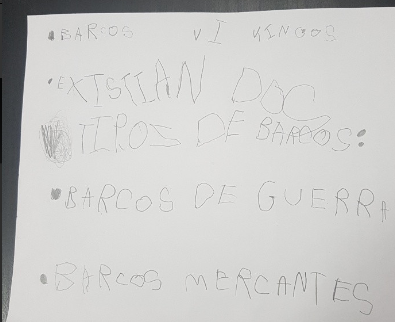 •BARCOS VIKINGOS
•EXISTIAN DOC
TIPOS DE BARCOS:
•BARCOS DE GUERRA
•BARCOS MERCANTES